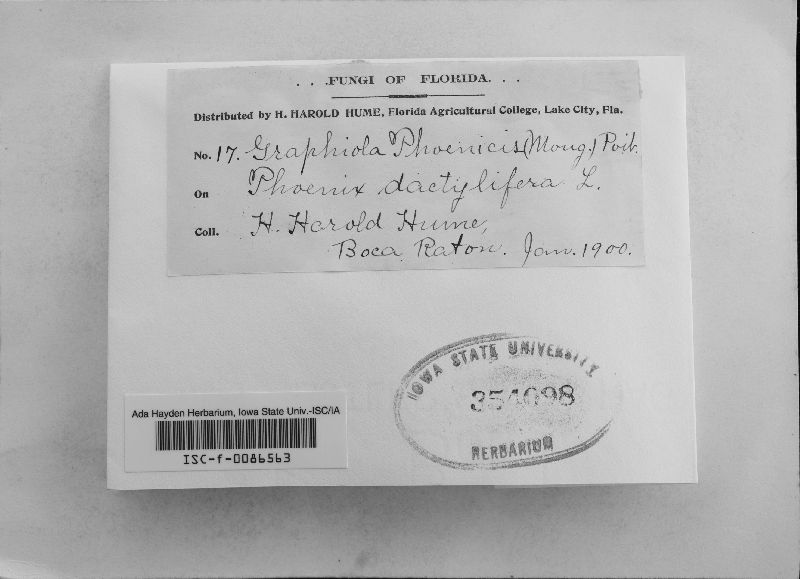 . . .FUNGI OF FLORIDA. . .
Distributed by H. HAROLD HUME, Florida Agricultural College, Lake City, Fla.
No. 17. Graphiola Phoenicis (Moug.) Poit.
On Phoenix dactylifera L.
Coll. H. Harold Hume,
Boca Raton. Jan. 1900.
IOWA STATE UNIVERSITY
354698
HERBARIUM
Ada Hayden Herbarium, Iowa State Univ.-ISC/IA
ISC-f-0086563